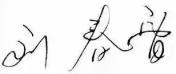 刘春雷